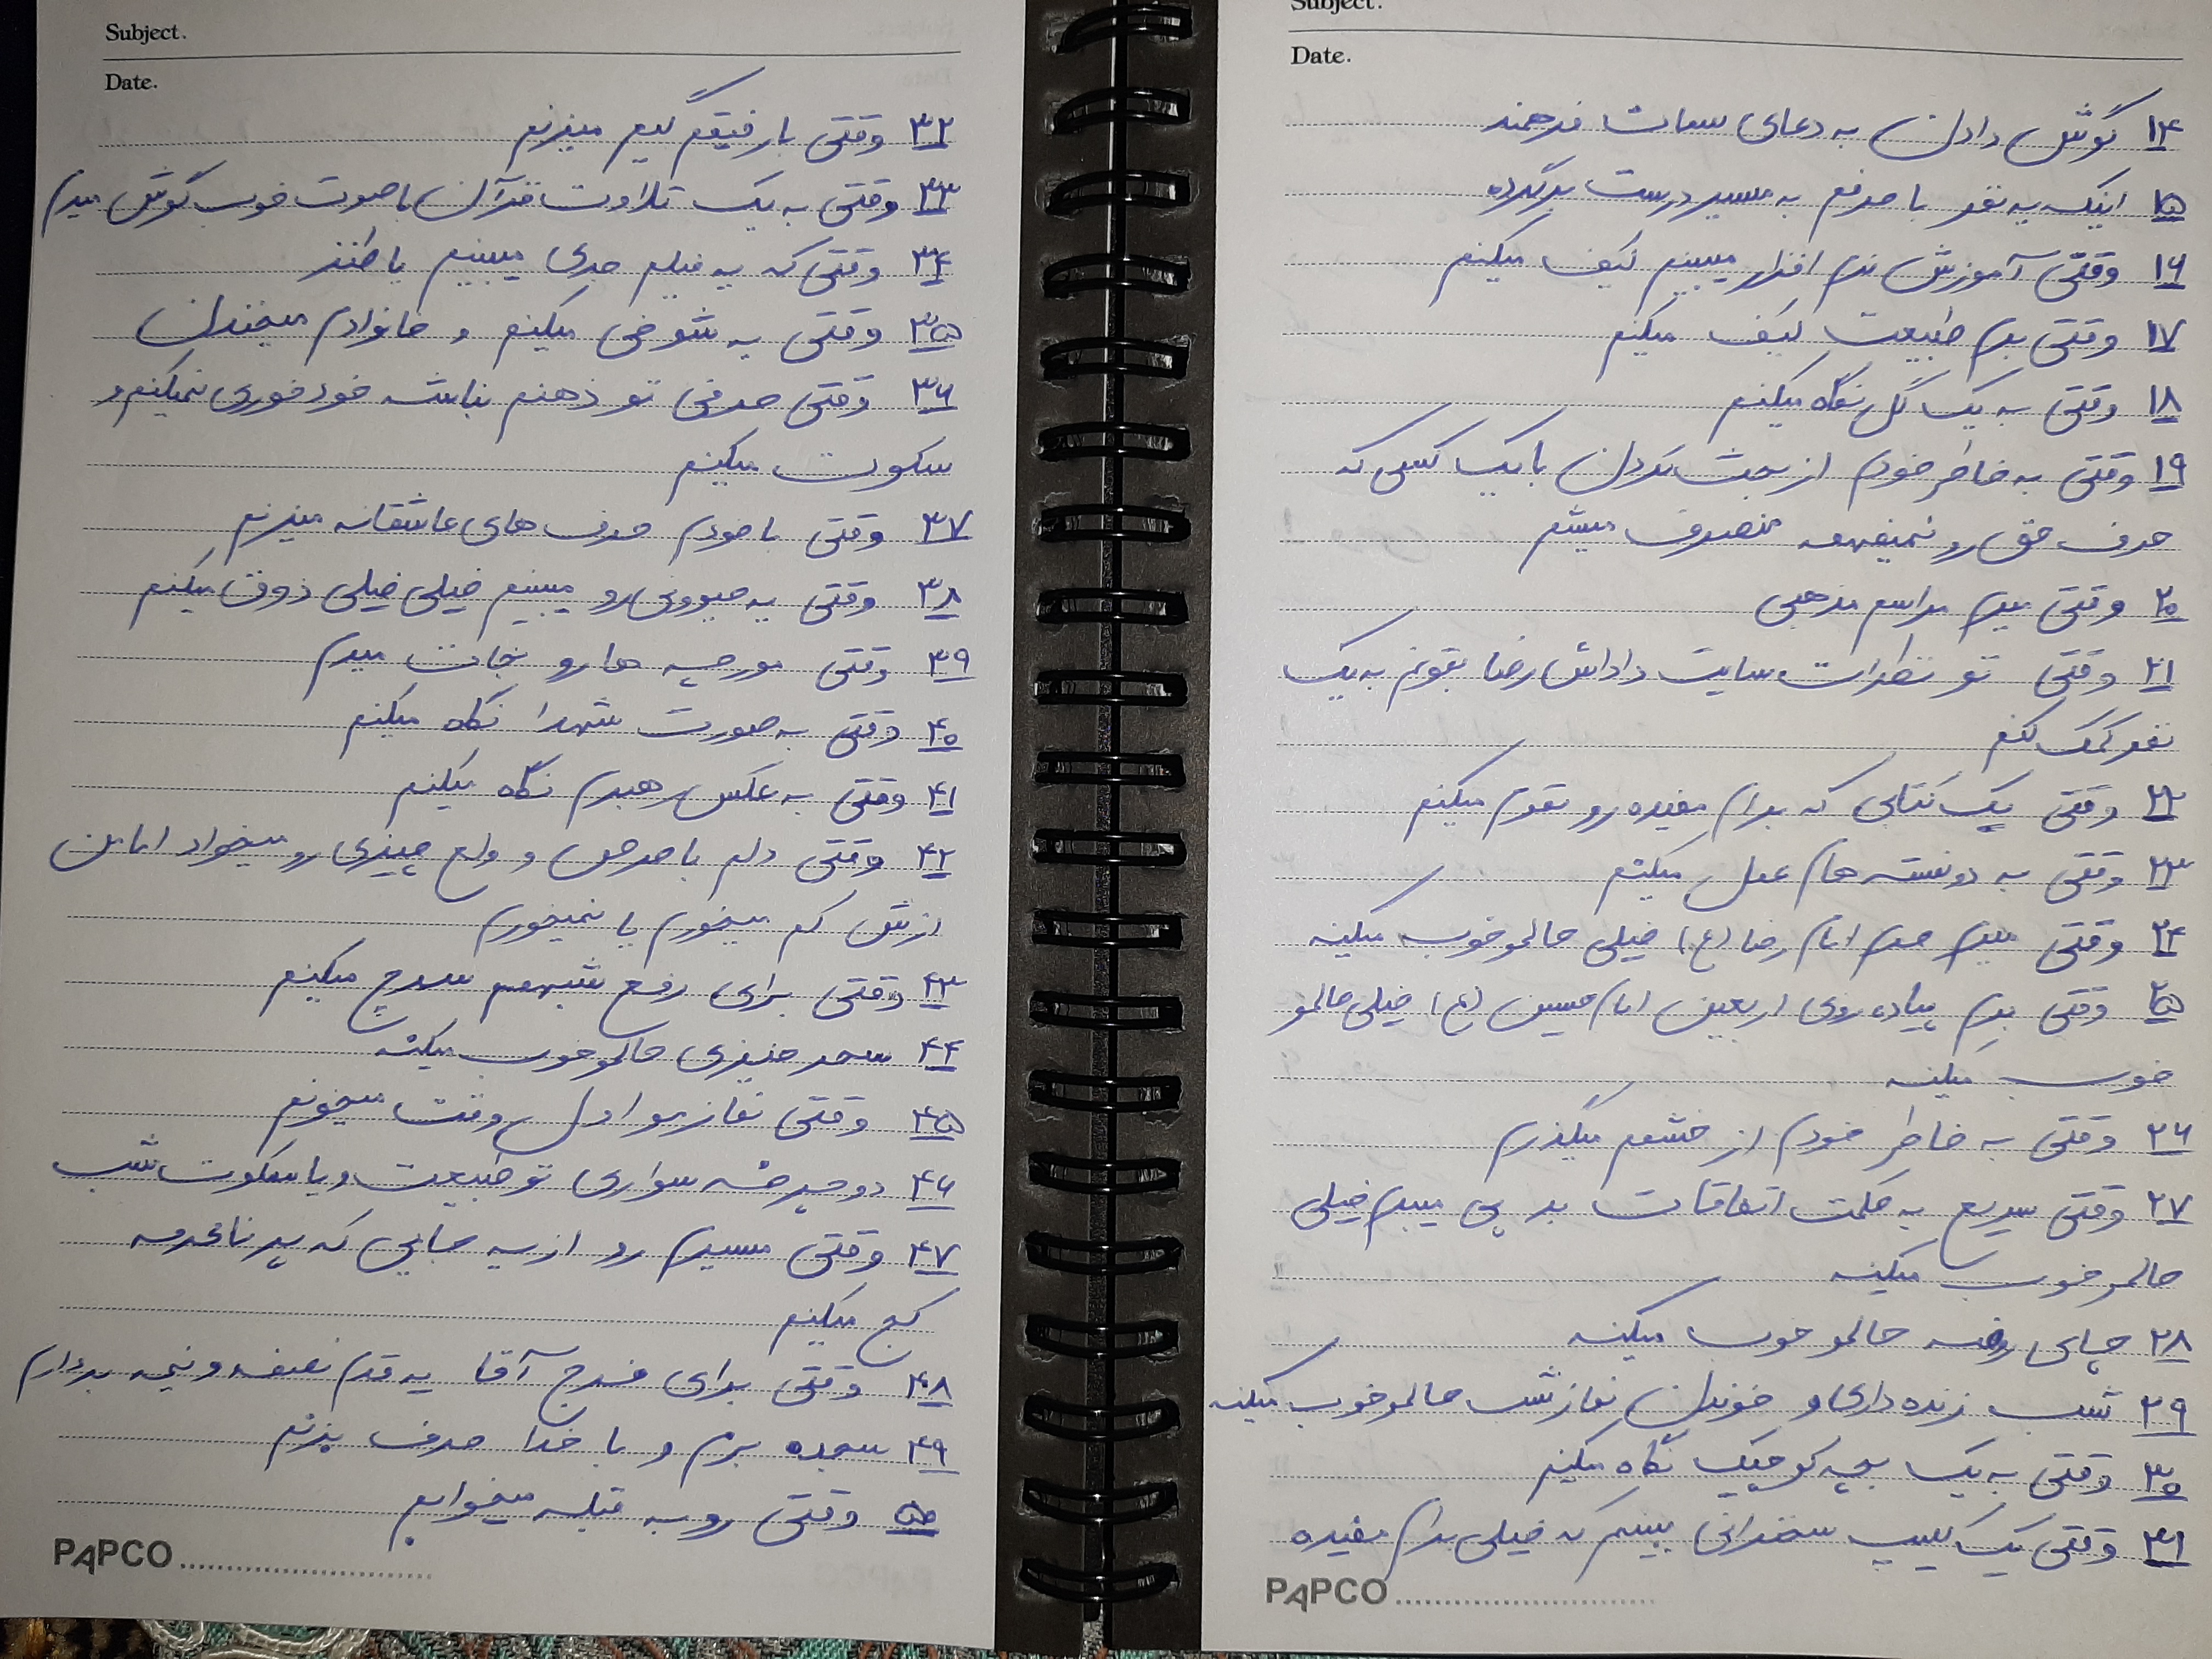 Subject.
Date.
۱۴ گوش دادن به دعای سمات فرهمند
۱۵ اینکه یه نفر با حرفم به مسیر درست برگرده
۱۶ وقتی آموزش نرم افزار میبینم کیف میکنم
۱۷ وقتی برم طبیعت کیف میکنم
۱۸ وقتی به یک گل نگاه میکنم
۱۹ وقتی به خاطر خودم از بحث کردن با یک کسی که
حرف حق رو نمیفهمه منصرف میشم
۲۰ وقتی میرم مراسم مذهبی
۲۱ وقتی تو نظرات سایت داداش رضا بتونم به یک
نفر کمک کنم
۲۲ وقتی یک کتابی که برام مفیده رو تموم میکنم
۲۳ وقتی به دونسته هام عمل میکنم
۲۴ وقتی میرم حرم امام رضا (ع) خیلی حالمو خوب میکنه
۲۵ وقتی برم پیاده روی اربعین امام حسین (ع) خیلی حالمو
خوب میکنه
۲۶ وقتی به خاطر خودم از خشمم میگذرم
۲۷ وقتی سریع به حکمت اتفاقات بد پی میبرم خیلی
حالمو خوب میکنه
۲۸ چای روضه حالمو خوب میکنه
۲۹ شب زنده داری و خوندن نماز شب حالمو خوب میکنه
۳۰ وقتی به یک بچه کوچیک نگاه میکنم
۳۱ وقتی یک کلیپ سخنرانی ببینم که خیلی برام مفیده
PAPCO
Subject.
Date.
۳۲ وقتی با رفیقم گیم میزنم
۳۳ وقتی به یک تلاوت قرآن با صوت خوب گوش میدم
۳۴ وقتی که یه فیلم جدی میبینم یا طنز
۳۵ وقتی یه شوخی میکنم و خانوادم میخندن
۳۶ وقتی حرفی تو ذهنم نباشه خودخوری نمیکنم و
سکوت میکنم
۳۷ وقتی با خودم حرف های عاشقانه میزنم
۳۸ وقتی یه حیوونی رو میبینم خیلی خیلی ذوق میکنم
۳۹ وقتی مورچه ها رو نجات میدم
۴۰ وقتی به صورت شهدا نگاه میکنم
۴۱ وقتی به عکس رهبرم نگاه میکنم
۴۲ وقتی دلم با حرص و ولع چیزی رو میخواد اما من
ازش کم میخورم یا نمیخورم
۴۳ وقتی برای رفع شبهه سرچ میکنم
۴۴ سحر خیزی حالمو خوب میکنه
۴۵ وقتی نمازمو اول وقت میخونم
۴۶ دوچرخه سواری تو طبیعت و یا سکوت شب
۴۷ وقتی مسیرم رو از یه جایی که پر نامحرمه
کج میکنم
۴۸ وقتی برای فرج آقا یه قدم نصفه و نیمه بردارم
۴۹ سجده برم و با خدا حرف بزنم
۵۰ وقتی رو به قبله میخوابم
PAPCO